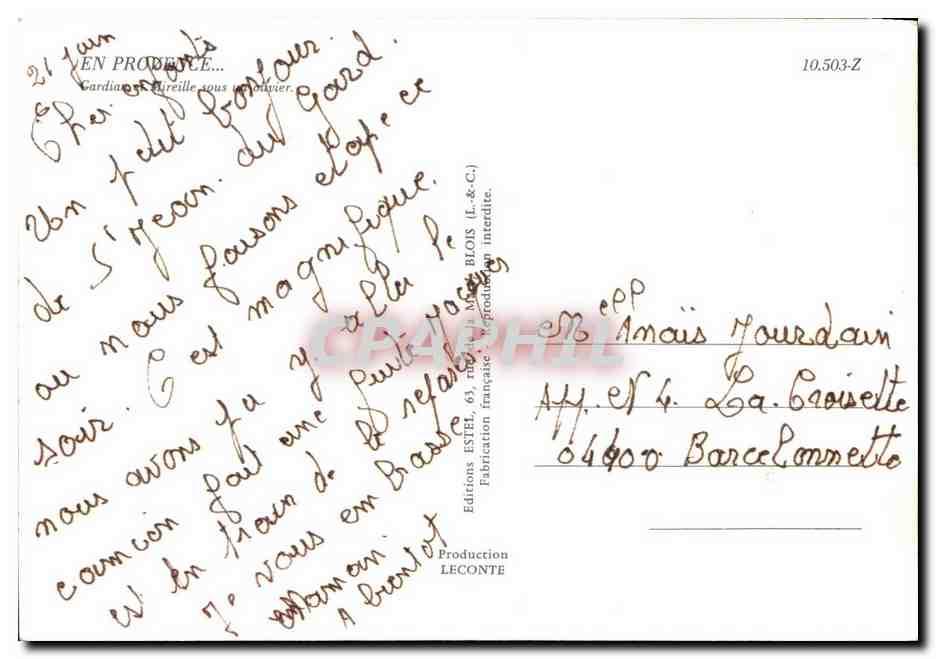 EN PROVENCE...
Gardian et Mireille sous un olivier.
10.503-Z
21 Juin
Cher enfants
Un petit bonjour
de St Jean. du Gard.
ou nous faisons etape ce
soir. C est magnifique.
nous avons pu y aller le
camion fait une fuite Jacques
est en train de le
Je vous embrasse
Maman
A bientot
Editions ESTEL, 63, rue de la BLOIS (L.-&-C.)
Fabrication française - Reproduction interdite.
Production
LECONTE
CPAPHIL
Melle Anaïs Jourdain
App. N 4. La Croisette
04400 Barcelonnette